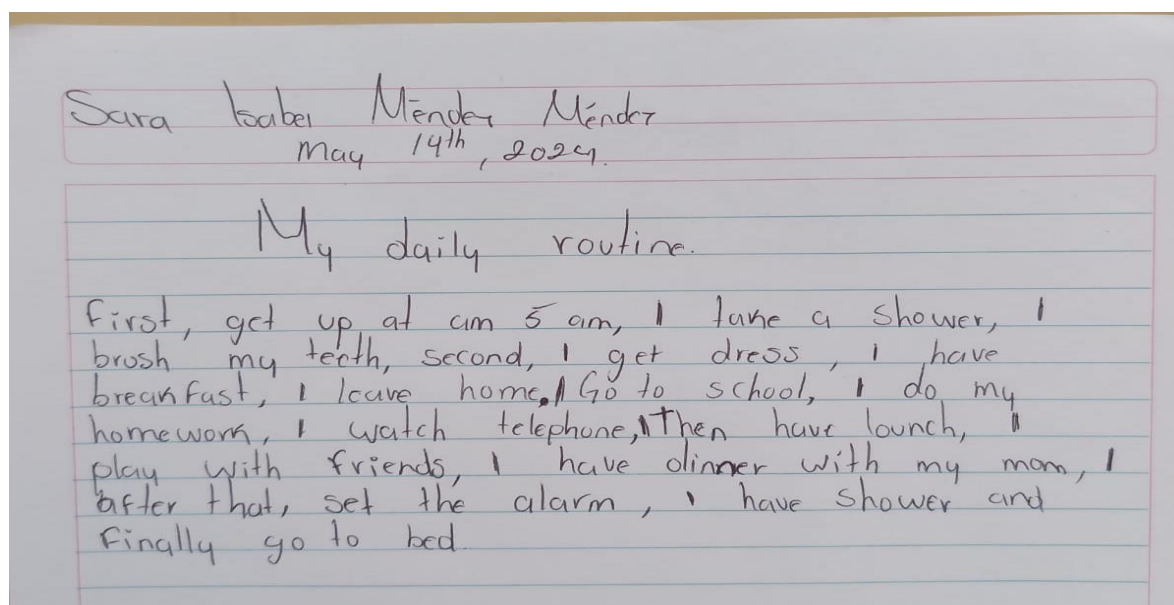 Sara Isabel Méndez Méndez
May 14th, 2024.
My daily routine.
First, get up at am 5 am, I take a shower, I
brush my teeth, second, I get dress, i have
breakfast, I leave home. I Go to school, I do my
homework, I watch telephone, I Then have lounch, I
play with friends, I have dinner with my mom, I
after that, set the alarm, I have shower and
Finally go to bed